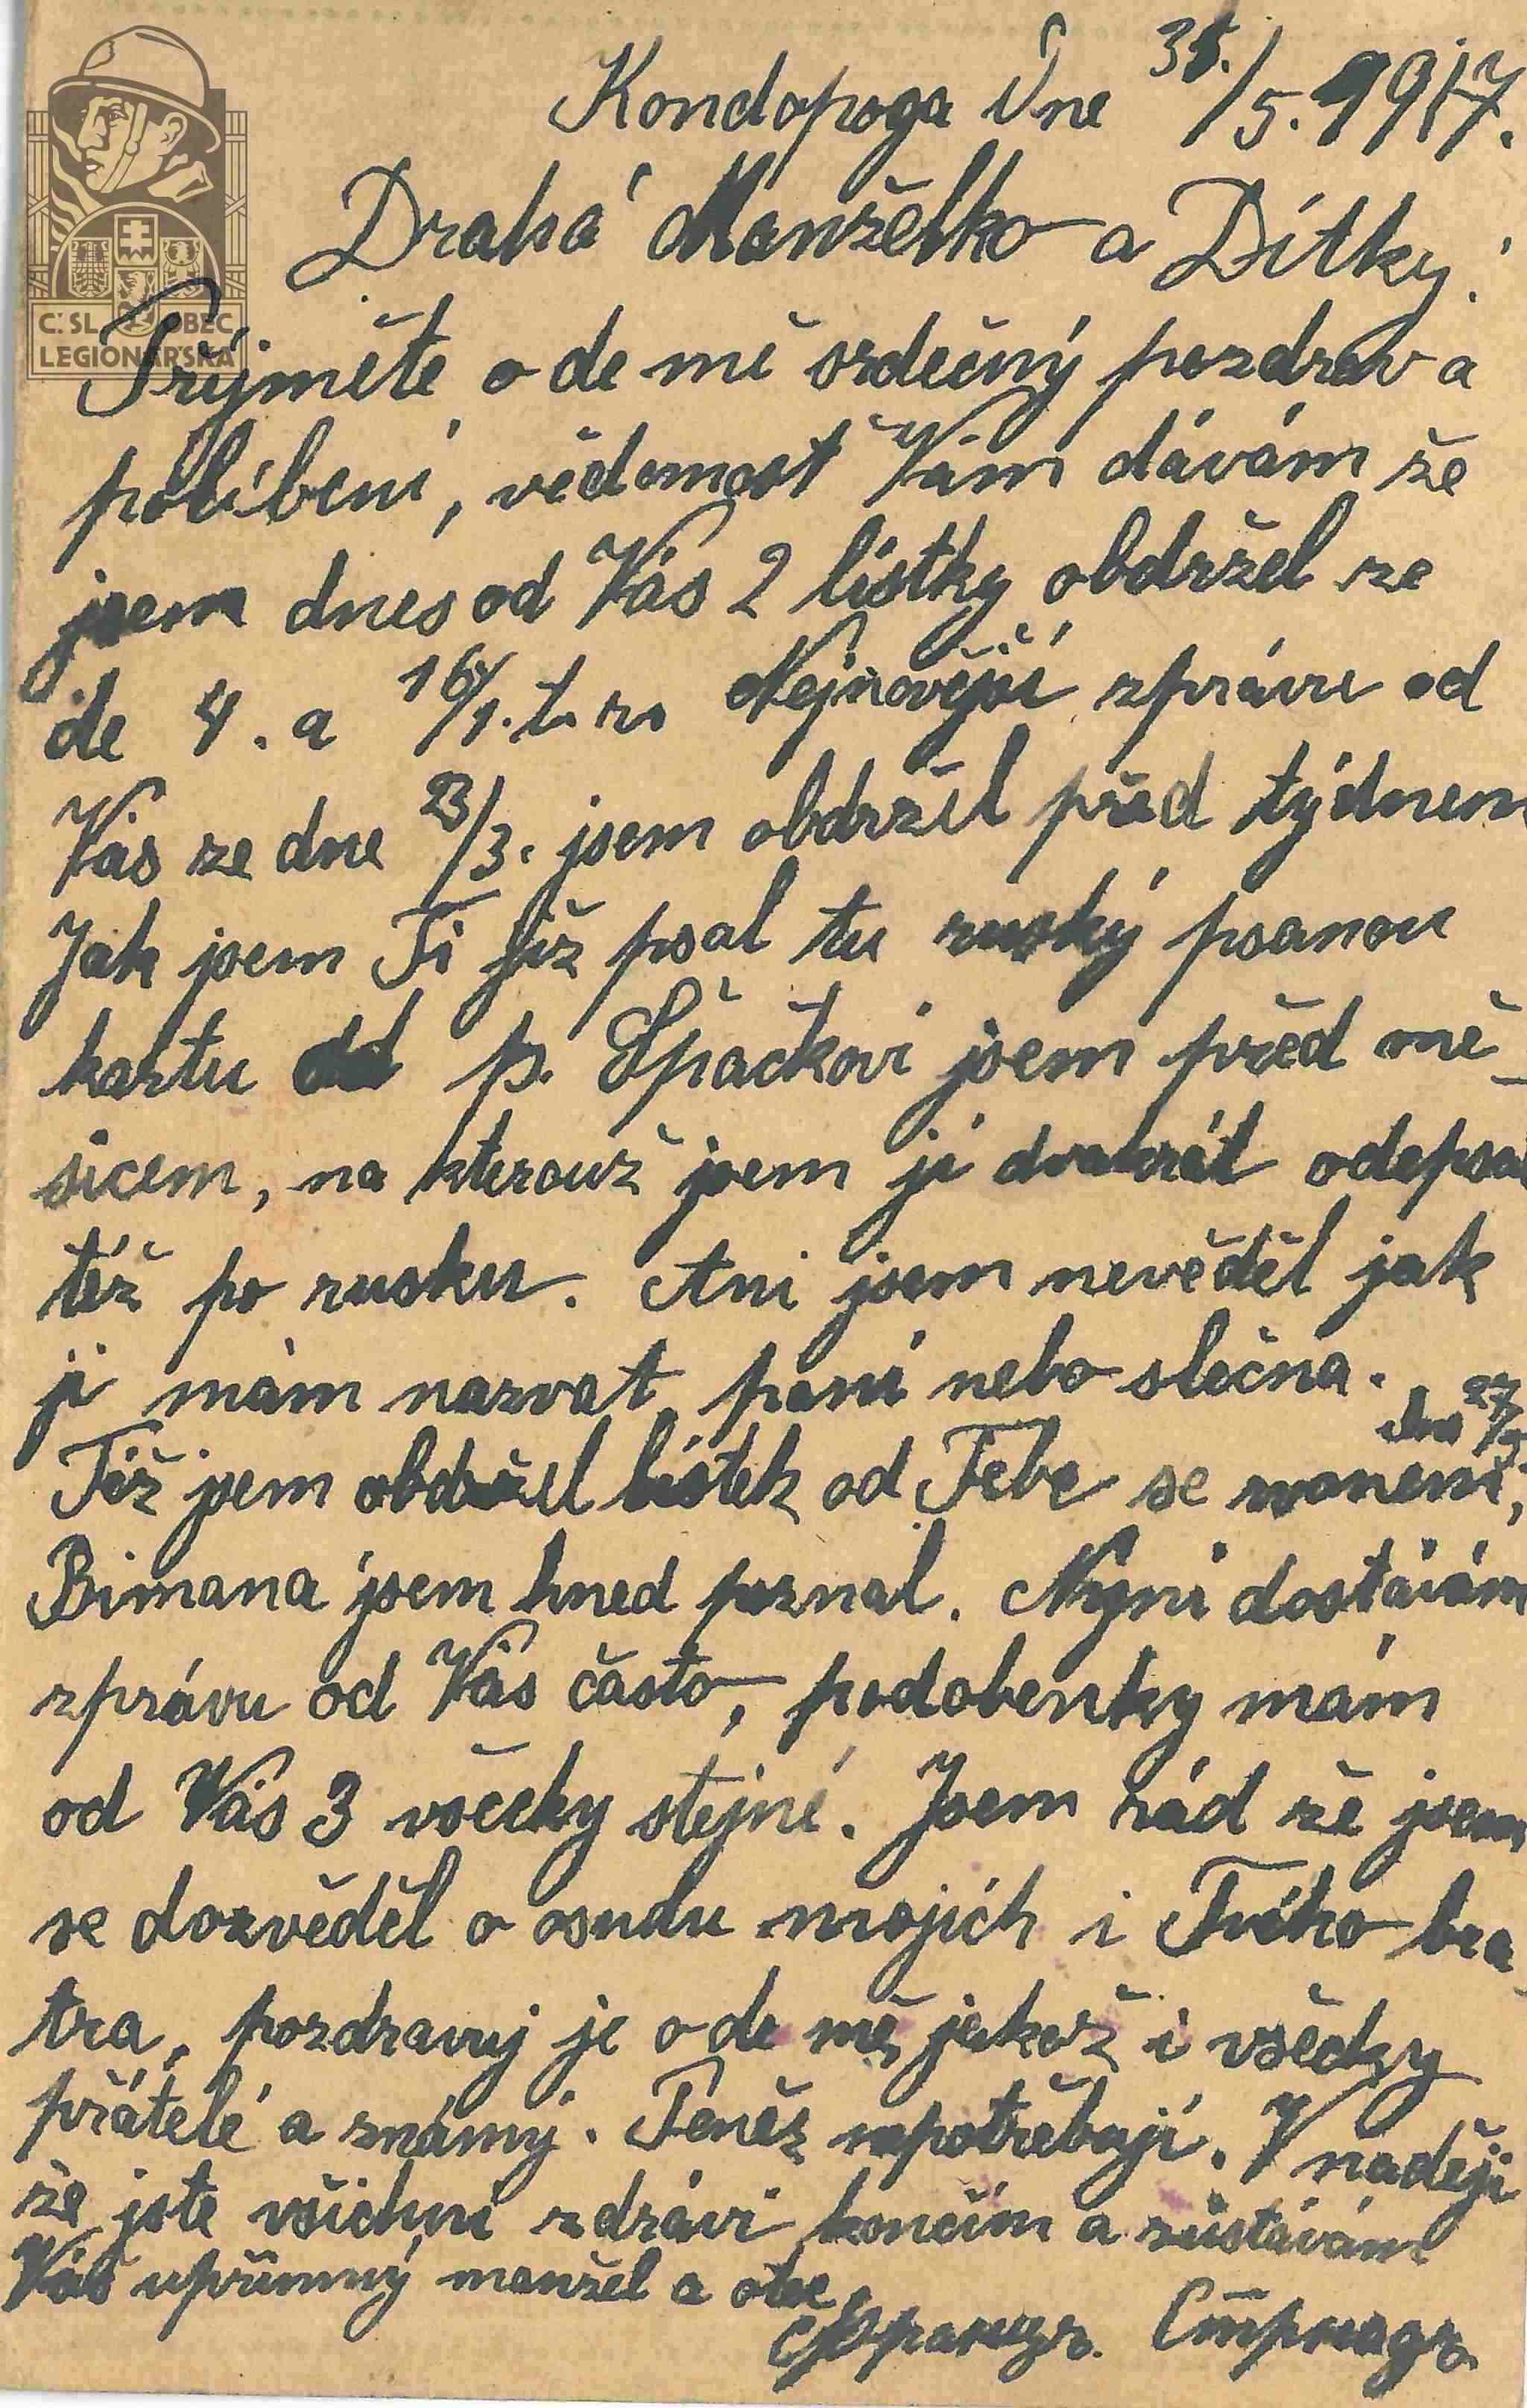 Kondopoga Dne 31./5. 1917.
Drahá Manželko a Dítky!
Č:SL. OBEC
LEGIONÁŘSKÁ
Přijměte ode mě srdečný pozdrav a
políbení, vědomost Vám dávám že
jsem dnes od Vás 2 lístky obdržel ze
de 4. a 16/1. t. r. Nejnovější zprávu od
Vás ze dne 23/3. jsem obdržel před týdnem
Jak jsem Ti již psal tu rusky psanou
kartu od p. Špačkovi jsem před mě_
sícem, na kterouž jsem jí dvakrát odepsal
též po rusku. Ani jsem nevěděl jak
ji mám nazvat paní nebo slečna.
dne 27/3
Též jsem obdržel lístek od Tebe se zvonění,
Bimana jsem hned poznal. Nyní dostávám
zprávu od Vás často, podobenky mám
od Vás 3 všecky stejné. Jsem rád že jsem
se dozvěděl o osudu mojich i Tvího bra_
tra, pozdravuj je ode mě, jakož i všecky
přátelé a známý. Peněz nepotřebuji. V naději
že jste všichni zdrávi končím a zůstávám
Váš upřímný manžel a otec